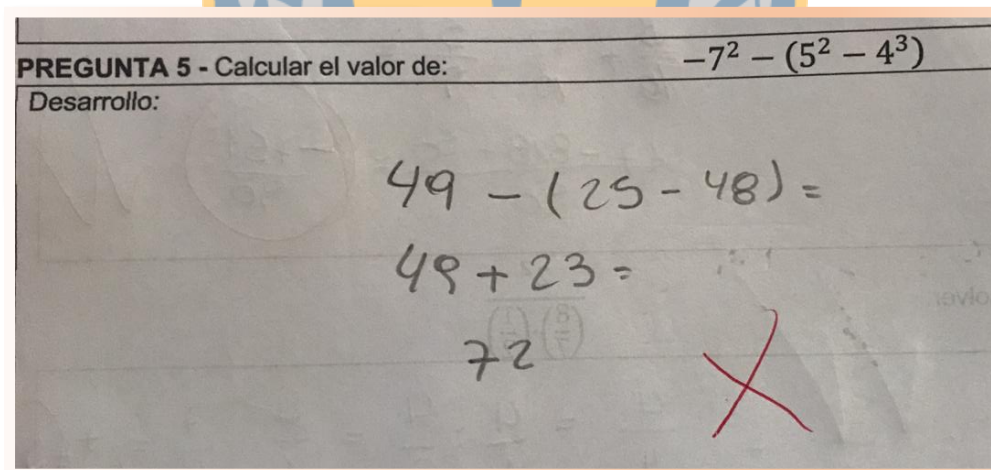 PREGUNTA 5 - Calcular el valor de: −7² − (5² − 4³)
Desarrollo:
49 - (25 - 48) =
49 + 23 =
72